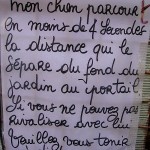 mon chien parcourt
en moins de 4 secondes
la distance qui le
sépare du fond du
jardin au portail
Si vous ne pouvez pas
rivaliser avec lui
veuillez vous tenir